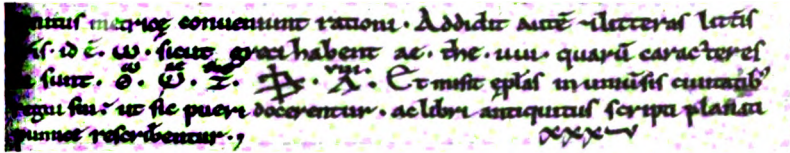 metricę conueniunt rationi. Addidit autē & litteras litt̄is
id ē. ω. sicut greci habent ae. the. uui. quarū caracteres
sunt. Et misit epl̄as in uniūsis ciuitatib;
regni sui. ut sic pueri docerentur. ac libri antiquitus scripti planati
pumice rescriberentur.,
xxxv